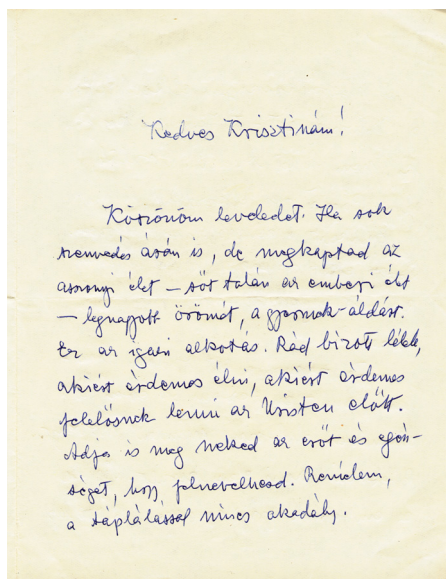 Kedves Krisztinám!
Köszönöm leveledet. Ha sok
szenvedés árán is, de megkaptad az
asszonyi élet – sőt talán az emberi élet
– legnagyobb örömét, a gyermek-áldást.
Ez az igazi alkotás. Rád bízott lélek,
akiért érdemes élni, akiért érdemes
felelősnek lenni az Úristen előtt.
Adja is meg neked az erőt és egész-
séget, hogy felnevelhesd. Remélem,
a táplálással nincs akadály.